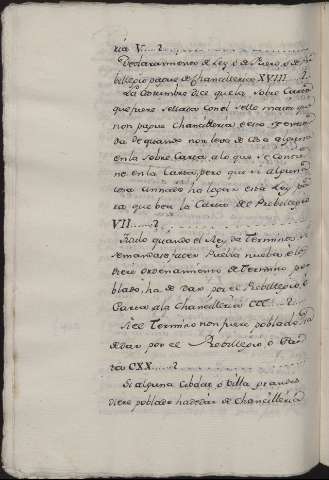 ria V.....
Declaramiento de Ley, o de Fuero, o de Pri
billegio pague de Chancilleria XVIII
La Costumbre dice que la sobre Carta
que fuere sellada con el sello maior que
non pague Chancilleria e esto se entien
da de quando non leva de cosa alguna
en la sobre Carta a lo que se contie
ne en la Carta, pero que si alguna
cosa annade ha logar esta Ley, pa
ra que ben la Carta de Prebilegio
VII......
Itado quando el Rey da Terminos, si
se mandase facer Puebla nueba, e le
diere ordenamiento de Termino po
blado, ha de dar por el Rebillegio, o
Carta a la Chancilleria CCC...
Si el Termino non fuere poblado ha
de dar por el Prebillegio o Car
ta CXX.....
Si alguna Cibdat o Villa grande
diere poblado ha de dar de Chancilleria